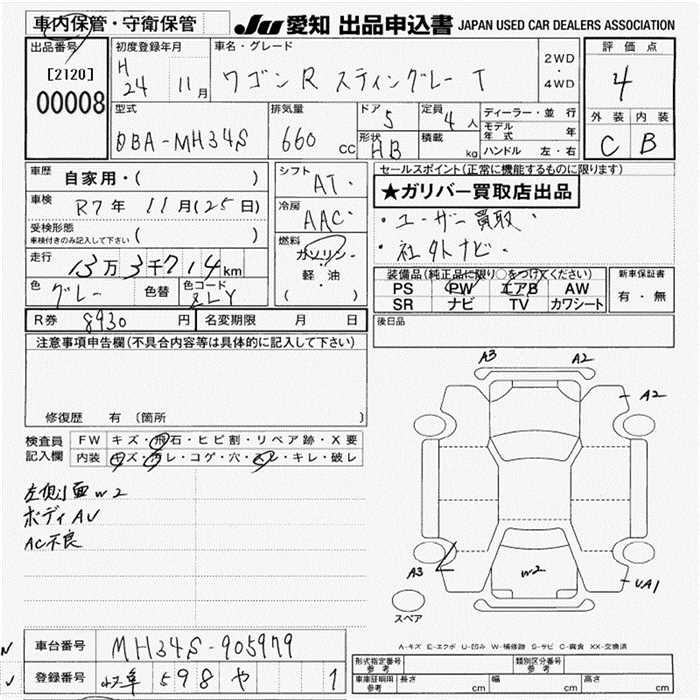 車内保管・守衛保管
JU 愛知 出品申込書 JAPAN USED CAR DEALERS ASSOCIATION
出品番号
[2120]
00008
初度登録年月
H
24 11月
車名・グレード
ワゴンR スティングレー T
2WD
・
4WD
評価点
4
外装 内装
C B
型式
DBA-MH34S
排気量
660 cc
ドア
5
定員
4人
形状
HB
積載
kg
ディーラー・並行
モデル年式 年
ハンドル 左・右
車歴 自家用・( )
車検 R7年 11月(25日)
受検形態
車検付きのみ記入して下さい ( )
走行 13万3千714km
色 グレー 色替 色コード
R券 8930円 名変期限 月 日
シフト
AT・
冷房
AAC・
燃料
ガソリン・
軽・油
( )
セールスポイント(正常に機能するものに限ります)
★ガリバー買取店出品
・ユーザー買取・
・社外ナビ・
装備品(純正品に限り○をつけてください)
PS PW エアB AW
SR ナビ TV カワシート
新車保証書
有・無
後日品
注意事項申告欄(不具合内容等は具体的に記入して下さい)
修復歴 有 〔箇所 〕
検査員
記入欄
FW キズ・飛石・ヒビ割・リペア跡・X要
内装 キズ・汚レ・コゲ・穴・スレ・キレ・破レ
左側面 W2
ボディ AU
AC不良
A3
A2
A2
A3
W2
UA1
スペア
A-キズ E-エクボ U-凹み W-補修跡 S-サビ C-腐食 XX-交換済
車台番号 MH34S-905979
登録番号 598 や 1
形式指定番号
参考
類別区分番号
参考
車庫証明用
参考
長さ cm 幅 cm 高さ cm